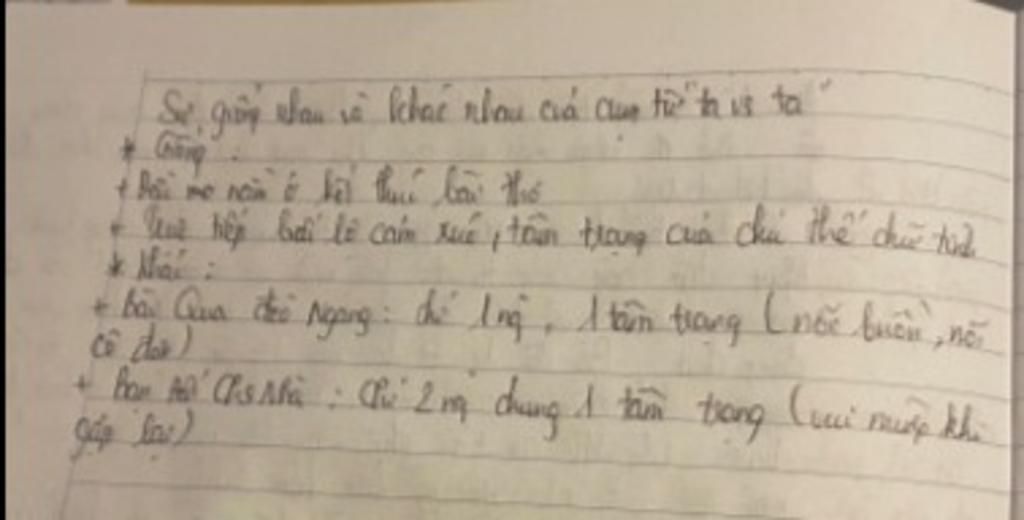 Sự giống nhau và khác nhau của cụm từ "ta vs ta"
* Giống :
+ Đều nằm ở kết thúc bài thơ
+ Trực tiếp bộc lộ cảm xúc, tâm trạng của chủ thể chữ tình
* Khác :
+ Bài Qua đèo Ngang : chỉ 1 ng, 1 tâm trạng (nỗi buồn, nỗi
cô đơn)
+ Bạn đến chs nhà : Chỉ 2 ng chung 1 tâm trạng (vui mừng khi
gặp lại)